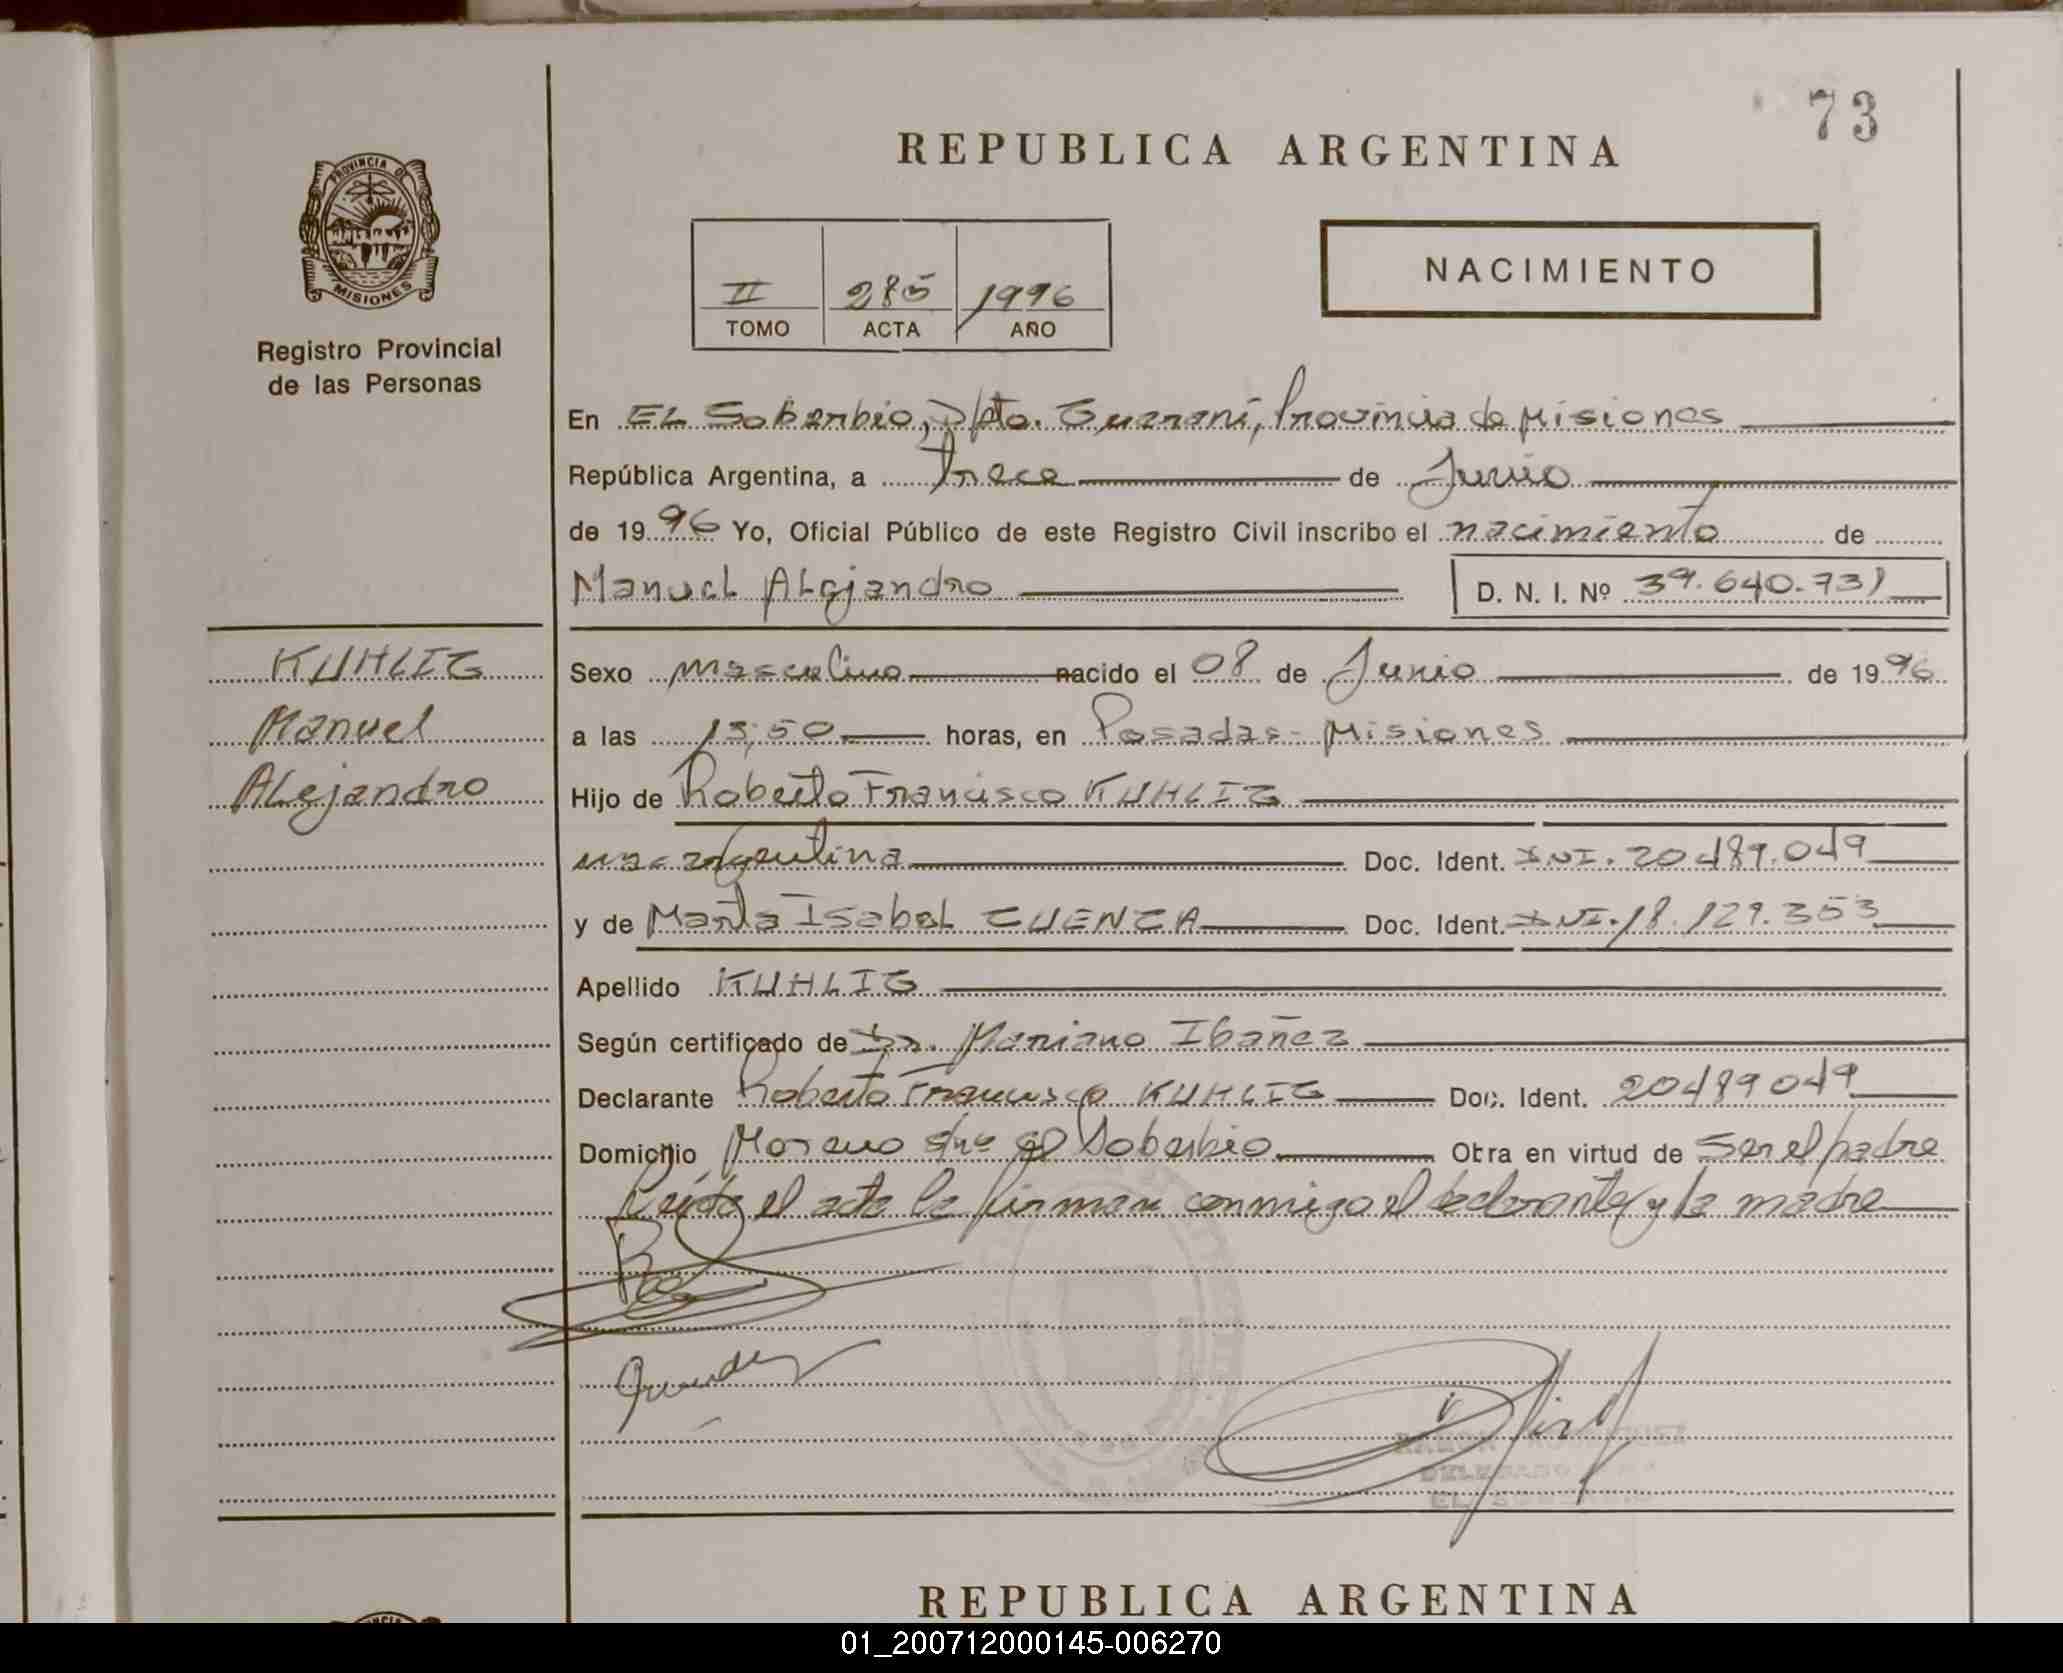 73
REPUBLICA ARGENTINA
PROVINCIA DE
MISIONES
Registro Provincial
de las Personas
II 285 1996
TOMO ACTA AÑO
NACIMIENTO
En EL Soberbio, Dpto. Guaraní, Provincia de Misiones
República Argentina, a trece de Junio
de 1996 Yo, Oficial Público de este Registro Civil inscribo el nacimiento de
Manuel Alejandro D. N. I. Nº 39.640.731
KUHLIG
Manuel
Alejandro
Sexo masculino nacido el 08 de Junio de 1996
a las 13,50 horas, en Posadas - Misiones
Hijo de Roberto Francisco KUHLIG
nac argentina Doc. Ident. DNI. 20489.049
y de Marta Isabel CUENCA Doc. Ident. DNI. 18.129.353
Apellido KUHLIG
Según certificado de Dr. Mariano Ibañez
Declarante Roberto Francisco KUHLIG Doc. Ident. 20489049
Domicilio Moreno s/nº El Soberbio Obra en virtud de Ser el padre
Leída el acta la firman conmigo el declarante y la madre
DELEGADO
EL SOBERBIO
REPUBLICA ARGENTINA
01_200712000145-006270